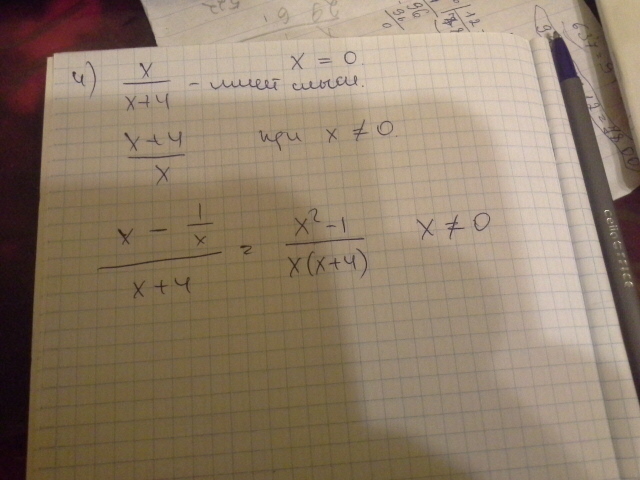 x = 0.
4) x/(x+4) - имеет смысл.
(x+4)/x при x ≠ 0.
(x - 1/x)/(x+4) = (x² - 1)/(x(x+4)) x ≠ 0